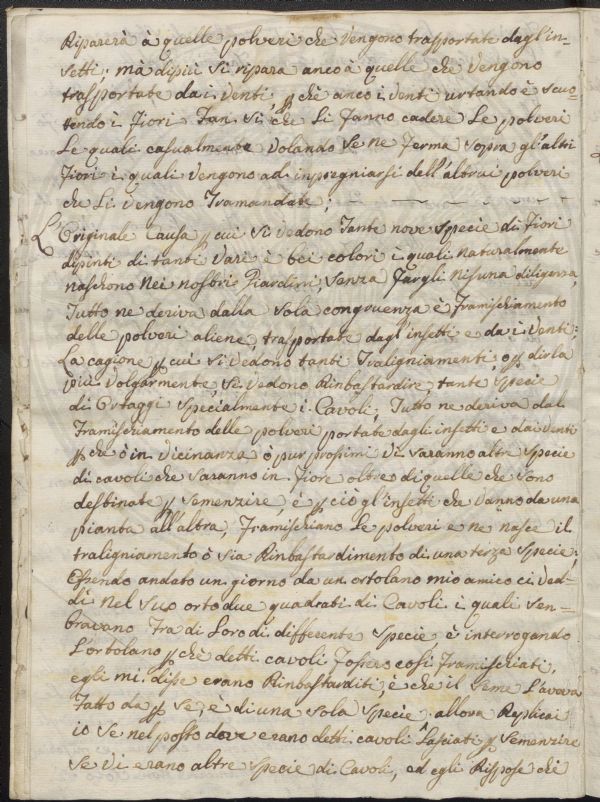 Riparerà à quelle polveri che vengono trasportate dagl'in-
setti; mà dipiù si ripara anco à quelle che vengono
trasportate da i venti, p chè anco i venti urtando è scuo-
tendo i fiori fan si che li fanno cadere le polveri
le quali casualmente volando se ne ferma sopra gl'altri
fiori i quali vengono ad inpregniarsi dell'altrui polveri
che li vengono tramandate;
L'Originale Causa p cui si vedono tante nove specie di fiori
dipinti di tanti vari è bei colori i quali naturalmente
naschono nei nostri Giardini, senza fargli nisuna diligenza,
Tutto ne deriva dalla sola congruenza è framischiamento
delle polveri aliene trasportate dagl'insetti e da i venti:
La cagione p cui si vedono tanti tralignamenti o p dirla
più volgarmente, se vedono Rinbastardire tante specie
di Ortaggi specialmente i Cavoli, Tutto ne deriva dal
framischiamento delle polveri portate dagli insetti e dai venti
p che o in vicinanza ò pur prossimi vi saranno altre specie
di cavoli che saranno in fiore oltre di quelle che sono
destinate p semenzire, è p ciò gl'insetti che vanno da una
pianta all'altra, framischiano le polveri e ne nasce il
traligniamento ò sia Rinbastardimento di una terza specie;
Essendo andato un giorno da un ortolano mio amico ci ved-
di nel suo orto due quadrati di Cavoli i quali sen-
bravano fra di loro di differente specie è interrogando
L'ortolano p chè detti cavoli fossero così framischiati,
egli mi disse erano Rinbastarditi è che il seme l'avava
fatto da p se, è di una sola specie allora Replicai
io se nel posto dove erano detti cavoli lasciati p semenzire
se vi erano altre specie di Cavoli, ed egli Rispose che